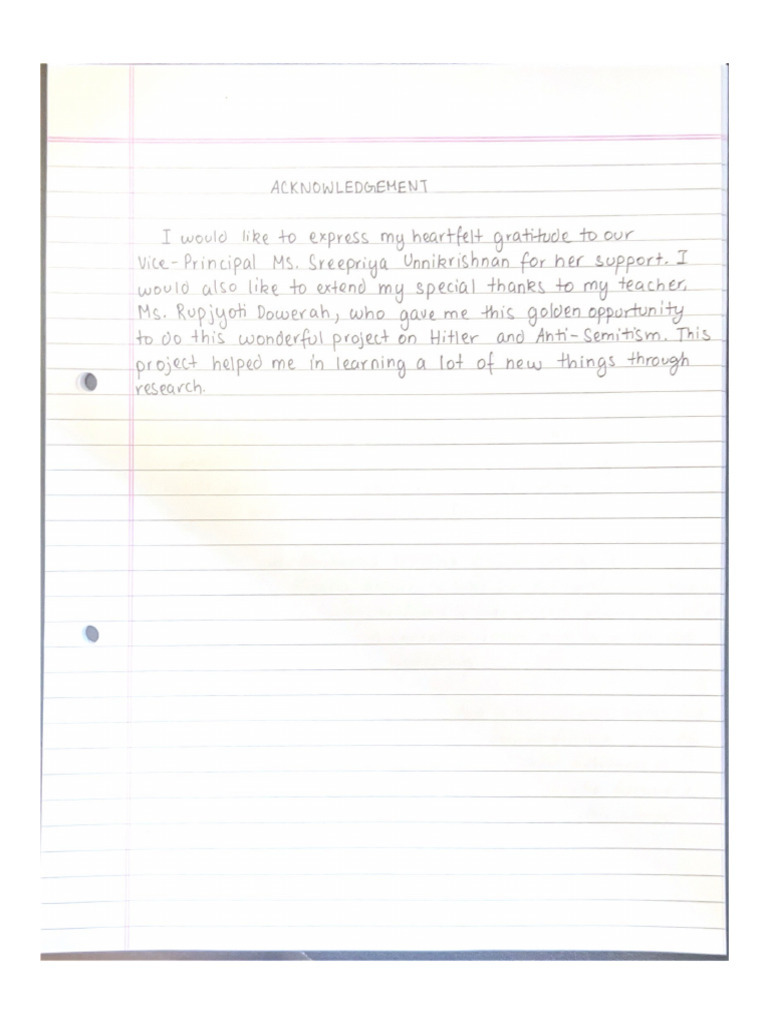 ACKNOWLEDGEMENT
I would like to express my heartfelt gratitude to our
Vice-Principal Ms. Sreepriya Unnikrishnan for her support. I
would also like to extend my special thanks to my teacher,
Ms. Rupjyoti Dowerah, who gave me this golden opportunity
to do this wonderful project on Hitler and Anti-Semitism. This
project helped me in learning a lot of new things through
research.